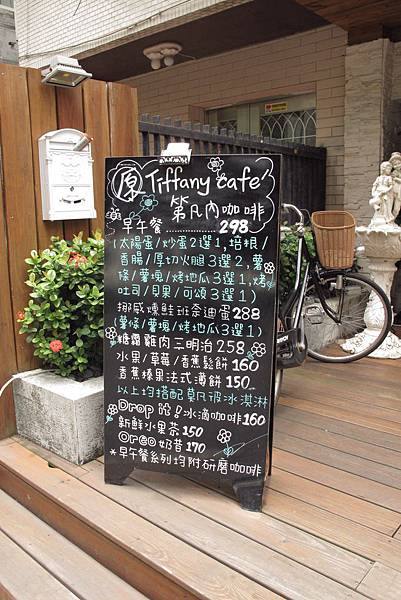 原 Tiffany cafe'
第凡內咖啡
早午餐............298
(太陽蛋/炒蛋2選1,培根/
香腸/厚切火腿3選2,薯
條/薯塊/烤地瓜3選1,烤
吐司/貝果/可頌3選1)
挪威燻鮭班尼迪蛋288
(薯條/薯塊/烤地瓜3選1)
糖燜雞肉三明治258
水果/草莓/香蕉鬆餅160
香蕉榛果法式薄餅150
以上均搭配莫凡彼冰淇淋
Drop it!冰滴咖啡160
新鮮水果茶150
Oreo奶昔170
*早午餐系列均附研磨咖啡